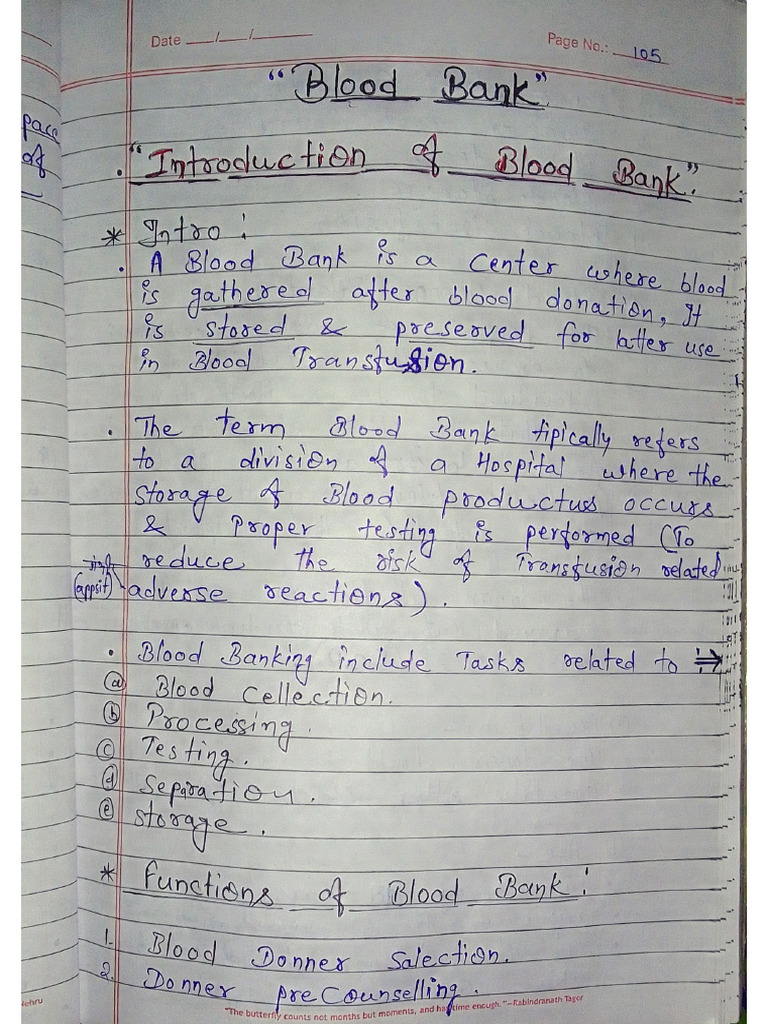 Date __/__/____
Page No.: 105
"Blood Bank"
. "Introduction of Blood Bank".
* Intro :
. A Blood Bank is a center where blood
is gathered after blood donation, It
is stored & preserved for latter use
in Blood Transfusion.
. The term Blood Bank tipically refers
to a division of a Hospital where the
storage of Blood productus occurs
& Proper testing is performed (To
reduce the risk of Transfusion related
(appsit) adverse reactions).
. Blood Banking include Tasks related to ⇒
(a) Blood Cellection.
(b) Processing.
(c) Testing.
(d) Separation.
(e) Storage.
* Functions of Blood Bank :
1. Blood Donner Salection.
2. Donner preCounselling.
"The butterfly counts not months but moments, and has time enough."–Rabindranath Tagor
pace
of
Nehru